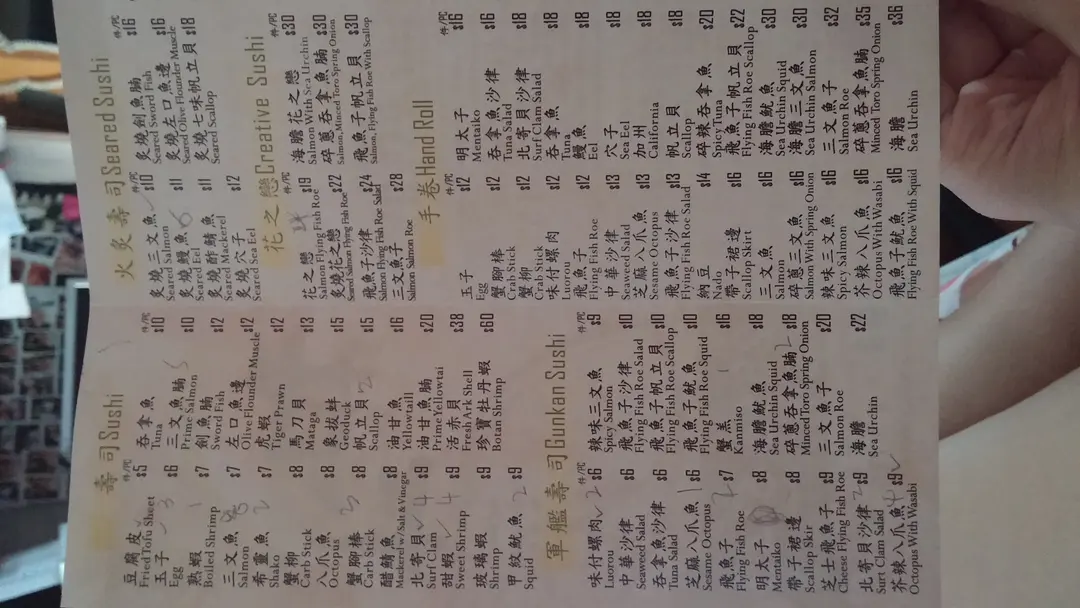 壽司 Sushi
件/PC
豆腐皮 $5
Fried Tofu Sheet
玉子 $6 3
Egg
熟蝦 $7 1
Boiled Shrimp
三文魚 $7
Salmon
希靈魚 $7 2
Shako
蟹柳 $8
Carb Stick
八爪魚 $8
Octopus
蟹腳棒 $8 2
Carb Stick
醋鯖魚 $8
Mackerel w/Salt & Vinegar
北寄貝 $9 4
Surf Clam
甜蝦 $9 4
Sweet Shrimp
玻璃蝦 $9
Shrimp
甲紋魷魚 $9 2
Squid
件/PC
吞拿魚 $10
Tuna
三文魚腩 $10 5
Prime Salmon
劍魚腩 $12
Sword Fish
左口魚邊 $12
Olive Flounder Muscle
虎蝦 $12
Tiger Prawn
馬刀貝 $13
Mataga
象拔蚌 $15
Geoduck
帆立貝 $15 2
Scallop
油甘魚 $16
Yellowtaill
油甘魚腩 $20
Prime Yellowtai
活赤貝 $38
Fresh Ark Shell
珍寶牡丹蝦 $60
Botan Shrimp
火炙壽司 Seared Sushi
炙燒三文魚 $10
Seared Salmon
炙燒鰻魚 $11 6
Seared Eel
炙燒醉鯖魚 $11
Seared Mackerel
炙燒穴子 $12
Seared Sea Eel
件/PC
炙燒劍魚腩 $16
Seared Sword Fish
炙燒左口魚邊 $16
Seared Olive Flounder Muscle
炙燒七味帆立貝 $18
Seared Scallop
花之戀 Creative Sushi
件/PC
花之戀 $19
Salmon Flying Fish Roe
炙燒花之戀 $22
Seared Salmon Flying Fish Roe
飛魚子沙律 $24
Salmon Flying Fish Roe Salad
三文魚子 $28
Salmon Salmon Roe
件/PC
海膽花之戀 $30
Salmon With Sea Urchin
碎蔥吞拿魚腩 $30
Salmon, Minced Toro Spring Onion
飛魚子帆立貝 $30
Salmon, Flying Fish Roe With Scallop
軍艦壽司 Gunkan Sushi
件/PC
味付螺肉 $6 2
Luorou
中華沙律 $6
Seaweed Salad
吞拿魚沙律 $6
Tuna Salad
芝麻八爪魚 $6 1
Sesame Octopus
飛魚子 $7 2
Flying Fish Roe
明太子 $8
Mentaiko
帶子裙邊 $8
Scallop Skir
芝士飛魚子 $9
Cheese Flying Fish Roe
北寄貝沙律 $9 2
Surt Clam Salad
芥辣八爪魚 $9 4
Octopus With Wasabi
件/PC
辣味三文魚 $9
Spicy Salmon
飛魚子沙律 $10
Flying Fish Roe Salad
飛魚子帆立貝 $10
Flying Fish Roe Scallop
飛魚子魷魚 $10
Flying Fish Roe Squid
蟹羔 $16 1
Kanmiso
海膽魷魚 $18
Sea Urchin Squid
碎蔥吞拿魚腩 $18 2
Minced Toro Spring Onion
三文魚子 $20
Salmon Roe
海膽 $22
Sea Urchin
手卷 Hand Roll
件/PC
玉子 $12
Egg
蟹腳棒 $12
Crab Stick
蟹柳 $12
Crab Stick
味付螺肉 $12
Luorou
飛魚子 $12
Flying Fish Roe
中華沙律 $13
Seaweed Salad
芝麻八爪魚 $13
Sesame Octopus
飛魚子沙律 $13
Flying Fish Roe Salad
納豆 $14
Nado
帶子裙邊 $16
Scallop Skirt
三文魚 $16
Salmon
碎蔥三文魚 $16
Salmon With Spring Onion
辣味三文魚 $16
Spicy Salmon
芥辣八爪魚 $16
Octopus With Wasabi
飛魚子魷魚 $16
Flying Fish Roe With Squid
件/PC
明太子 $16
Mentaiko
吞拿魚沙律 $16
Tuna Salad
北寄貝沙律 $18
Surf Clam Salad
吞拿魚 $18
Tuna
鰻魚 $18
Eel
穴子 $18
Sea Eel
加州 $18
California
帆立貝 $18
碎辣吞拿魚 $20
Spicy Tuna
飛魚子帆立貝 $22
Flying Fish Roe Scallop
海膽魷魚 $30
Sea Urchin Squid
海膽三文魚 $30
Sea Urchin Salmon
三文魚子 $32
Salmon Roe
碎蔥吞拿魚腩 $35
Minced Toro Spring Onion
海膽 $36
Sea Urchin